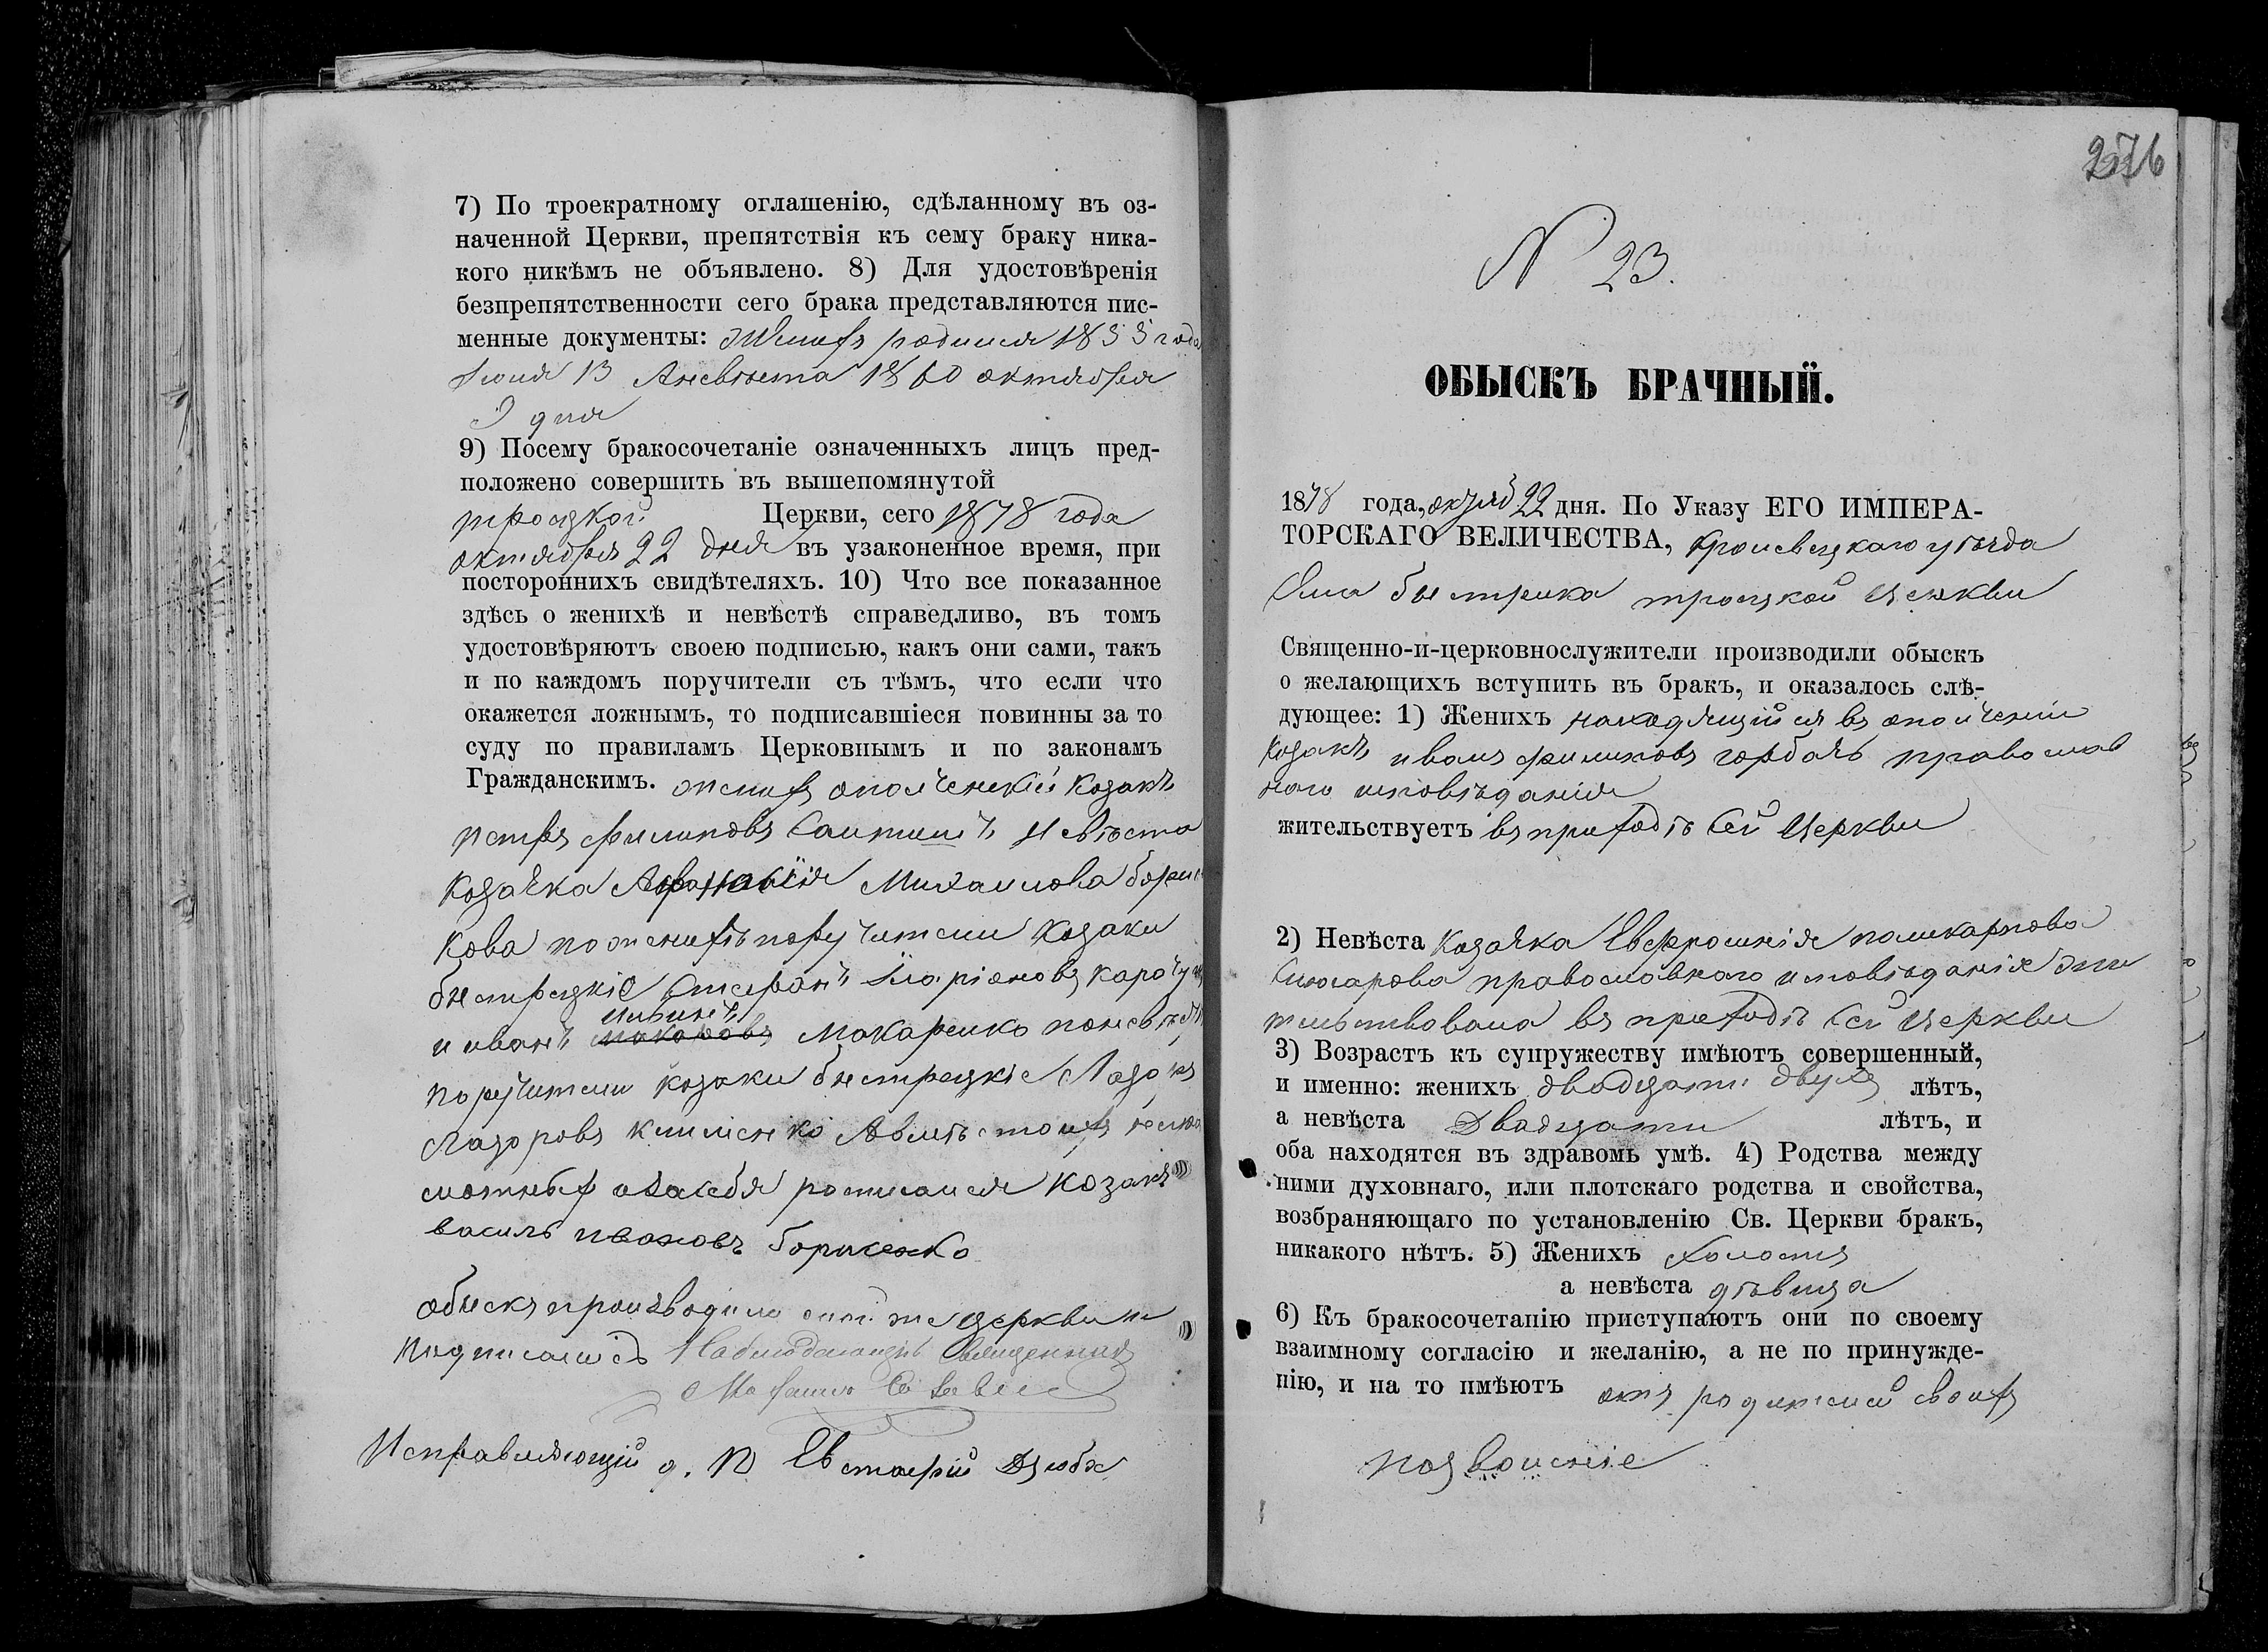 7) По троекратному оглашенію, сдѣланному въ оз-
наченной Церкви, препятствія къ сему браку ника-
кого никѣмъ не объявлено. 8) Для удостовѣренія
безпрепятственности сего брака представляются пис-
менные документы: Женихъ родился 1855 года
Іюня 13 Аневѣста 1860 октября
9 дня
9) Посему бракосочетаніе означенныхъ лицъ пред-
положено совершить въ вышепомянутой
троецкой Церкви, сего 1878 года
октября 22 дня въ узаконенное время, при
постороннихъ свидѣтеляхъ. 10) Что все показанное
здѣсь о женихѣ и невѣстѣ справедливо, въ томъ
удостовѣряютъ своею подписью, какъ они сами, такъ
и по каждомъ поручители съ тѣмъ, что если что
окажется ложнымъ, то подписавшіеся повинны за то
суду по правиламъ Церковнымъ и по законамъ
Гражданскимъ. женихъ ополченскій козакъ
петръ филиповъ невѣста
козачка Афанасія Михаилова борис
кова поженихѣ поручители козаки
быстрецкіе Стефанъ Иларіоновъ
и иванъ Макаренко поневѣстѣ
поручители козаки быстрецкіе
Лазоровъ клименко Авмѣсто ихъ
росписался козакъ
василь ивановъ борисенко
обыскъ производили тойже церкви и
подписались Наблюдающій Священникъ
Исправляющій д. П Евстафій Дзюба
276
N 23.
ОБЫСКЪ БРАЧНЫЙ.
1878 года, октяб 22 дня. По Указу ЕГО ИМПЕРА-
ТОРСКАГО ВЕЛИЧЕСТВА, кролевецкаго уѣзда
Села быстрика троецкой Церкви
Священно-и-церковнослужители производили обыскъ
о желающихъ вступить въ бракъ, и оказалось слѣ-
дующее: 1) Женихъ находящийся въ ополченіи
козакъ иванъ филиповъ горбачъ православ
наго исповѣданія
жительствуетъ въ приходѣ Сей Церкви
2) Невѣста козачка Евфросинія поликарпова
Слюсарова православнаго исповѣданія жи
тельствовала въ приходѣ Сей Церкви
3) Возрастъ къ супружеству имѣютъ совершенный,
и именно: женихъ двадцати двухъ лѣтъ,
а невѣста Двадцати лѣтъ, и
оба находятся въ здравомъ умѣ. 4) Родства между
ними духовнаго, или плотскаго родства и свойства,
возбраняющаго по установленію Св. Церкви бракъ,
никакого нѣтъ. 5) Женихъ Холостъ
а невѣста дѣвица
6) Къ бракосочетанію приступаютъ они по своему
взаимному согласію и желанію, а не по принужде-
нію, и на то имѣютъ отъ родителей своихъ
позволеніе